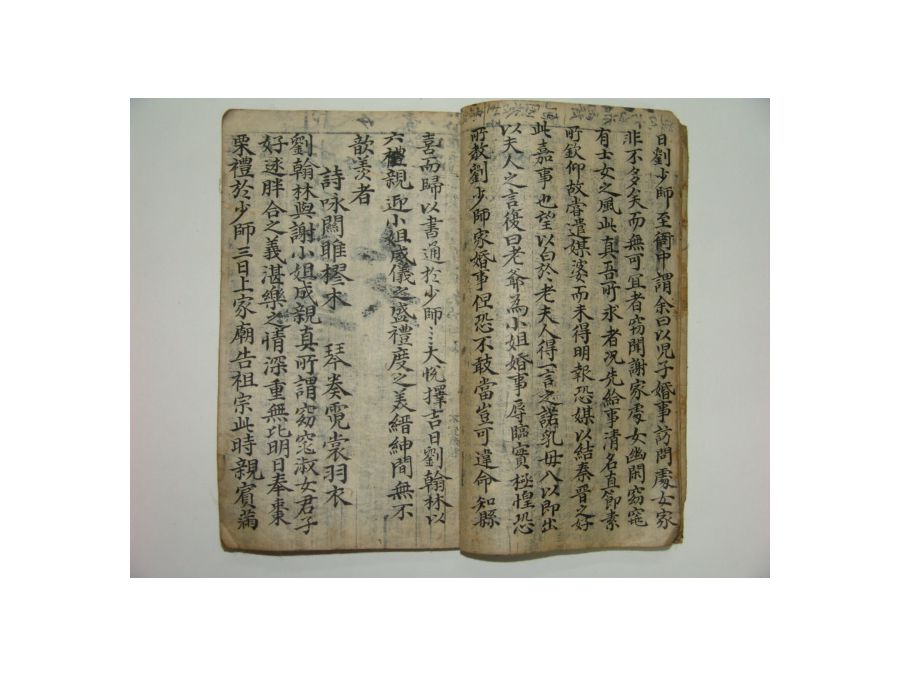 日劉少師至衙中謂余曰以児子婚事訪問處女家
非不多矣而無可宜者窃聞謝家處女幽閑窈窕
有士女之風此真吾所求者况先給事清名直節素
所欽仰故嘗遣媒婆而未得明報恐媒以結秦晋之好
此嘉事也望以白於老夫人得一言之諾乳母入以即出
以夫人之言復曰老爺為小姐婚事辱臨實極惶恐
所教劉少師家婚事但恐不敢當豈可違命知縣
喜而歸以書通於少師〻大悅擇吉日劉翰林以
六禮親迎小姐威儀之盛禮度之美縉紳間無不
歆羡者
詩咏關雎樛木 琴奏霓裳羽衣
劉翰林與謝小姐成親真所謂窈窕淑女君子
好逑胖合之義湛樂之情深重無比明日奉棗
栗禮於少師三日上家廟告祖宗此時親賓滿